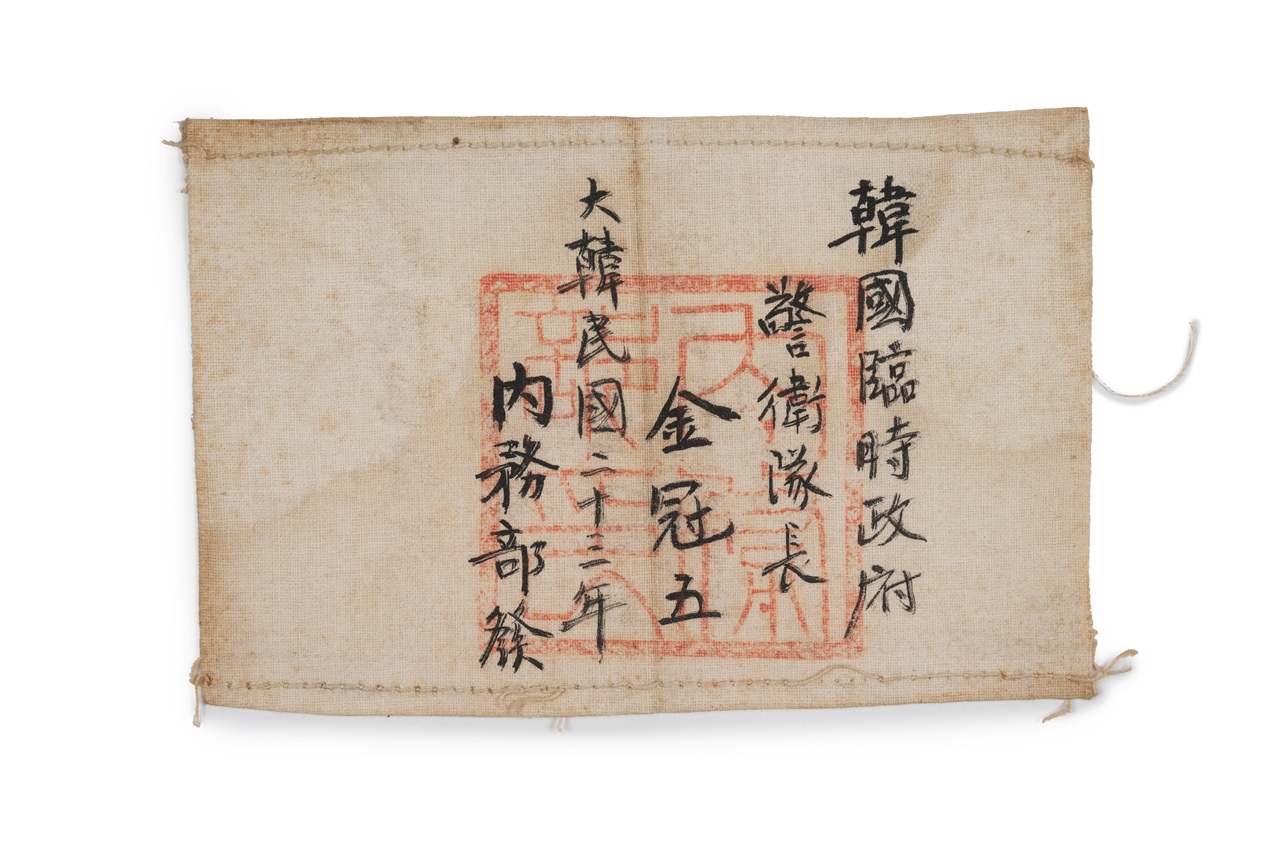 韓國臨時政府
警衛隊長
金冠五
大韓民國二十三年
內務部發